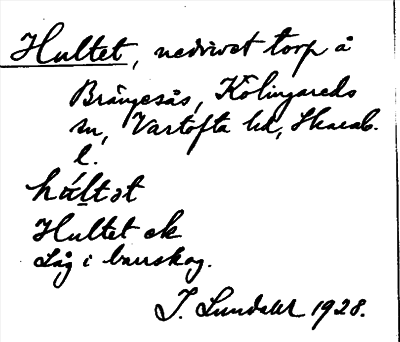 Hultet, nedrivet torp å
Brängesås, Kölingareds
sn, Vartofta hd, Skarab.
l.
húltət
Hultet ek
Låg i barrskog.
I. Lundahl 1928.